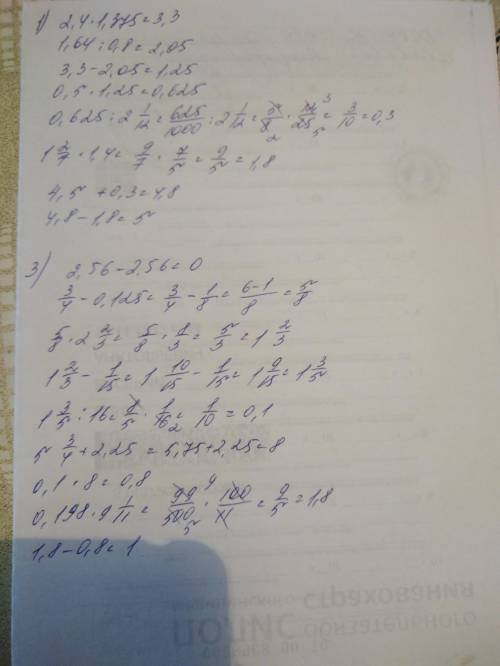 1) 2,4 · 1,375 = 3,3
1,64 : 0,8 = 2,05
3,3 - 2,05 = 1,25
0,5 · 1,25 = 0,625
0,625 : 2 1/12 = 625/1000 : 2 1/12 = 5/8 2 · 12/25 5 3 = 3/10 = 0,3
1 2/7 · 1,4 = 9/7 · 7/5 = 9/5 = 1,8
4,5 + 0,3 = 4,8
4,8 - 1,8 = 5
3) 2,56 - 2,56 = 0
3/4 - 0,125 = 3/4 - 1/8 = 6-1/8 = 5/8
5/8 · 2 2/3 = 5/8 · 1/3 = 5/3 = 1 2/3
1 2/3 - 1/15 = 1 10/15 - 1/15 = 1 9/15 = 1 3/5
1 3/5 : 16 = 1/5 · 1/16 2 = 1/10 = 0,1
5 3/4 + 2,25 = 5,75 + 2,25 = 8
0,1 · 8 = 0,8
0,198 · 9 1/11 = 99/500 5 9 · 100/11 = 9/5 = 1,8
1,8 - 0,8 = 1
страхования
ПОЛИС обязательного